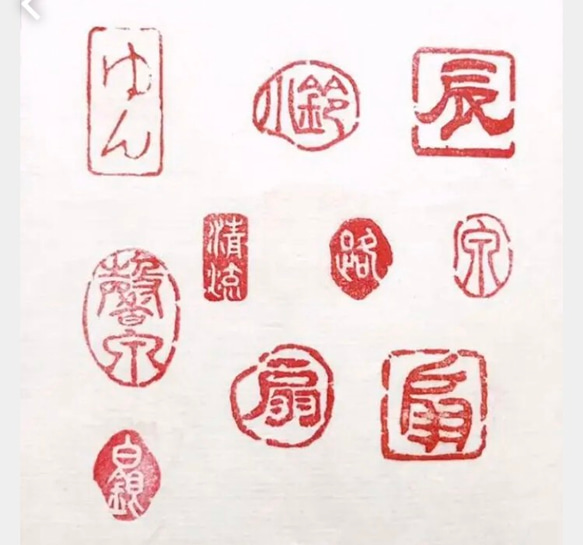 ゆん
小鈴
辰
清流
路
宗
馨泉
扇
扇
白銀